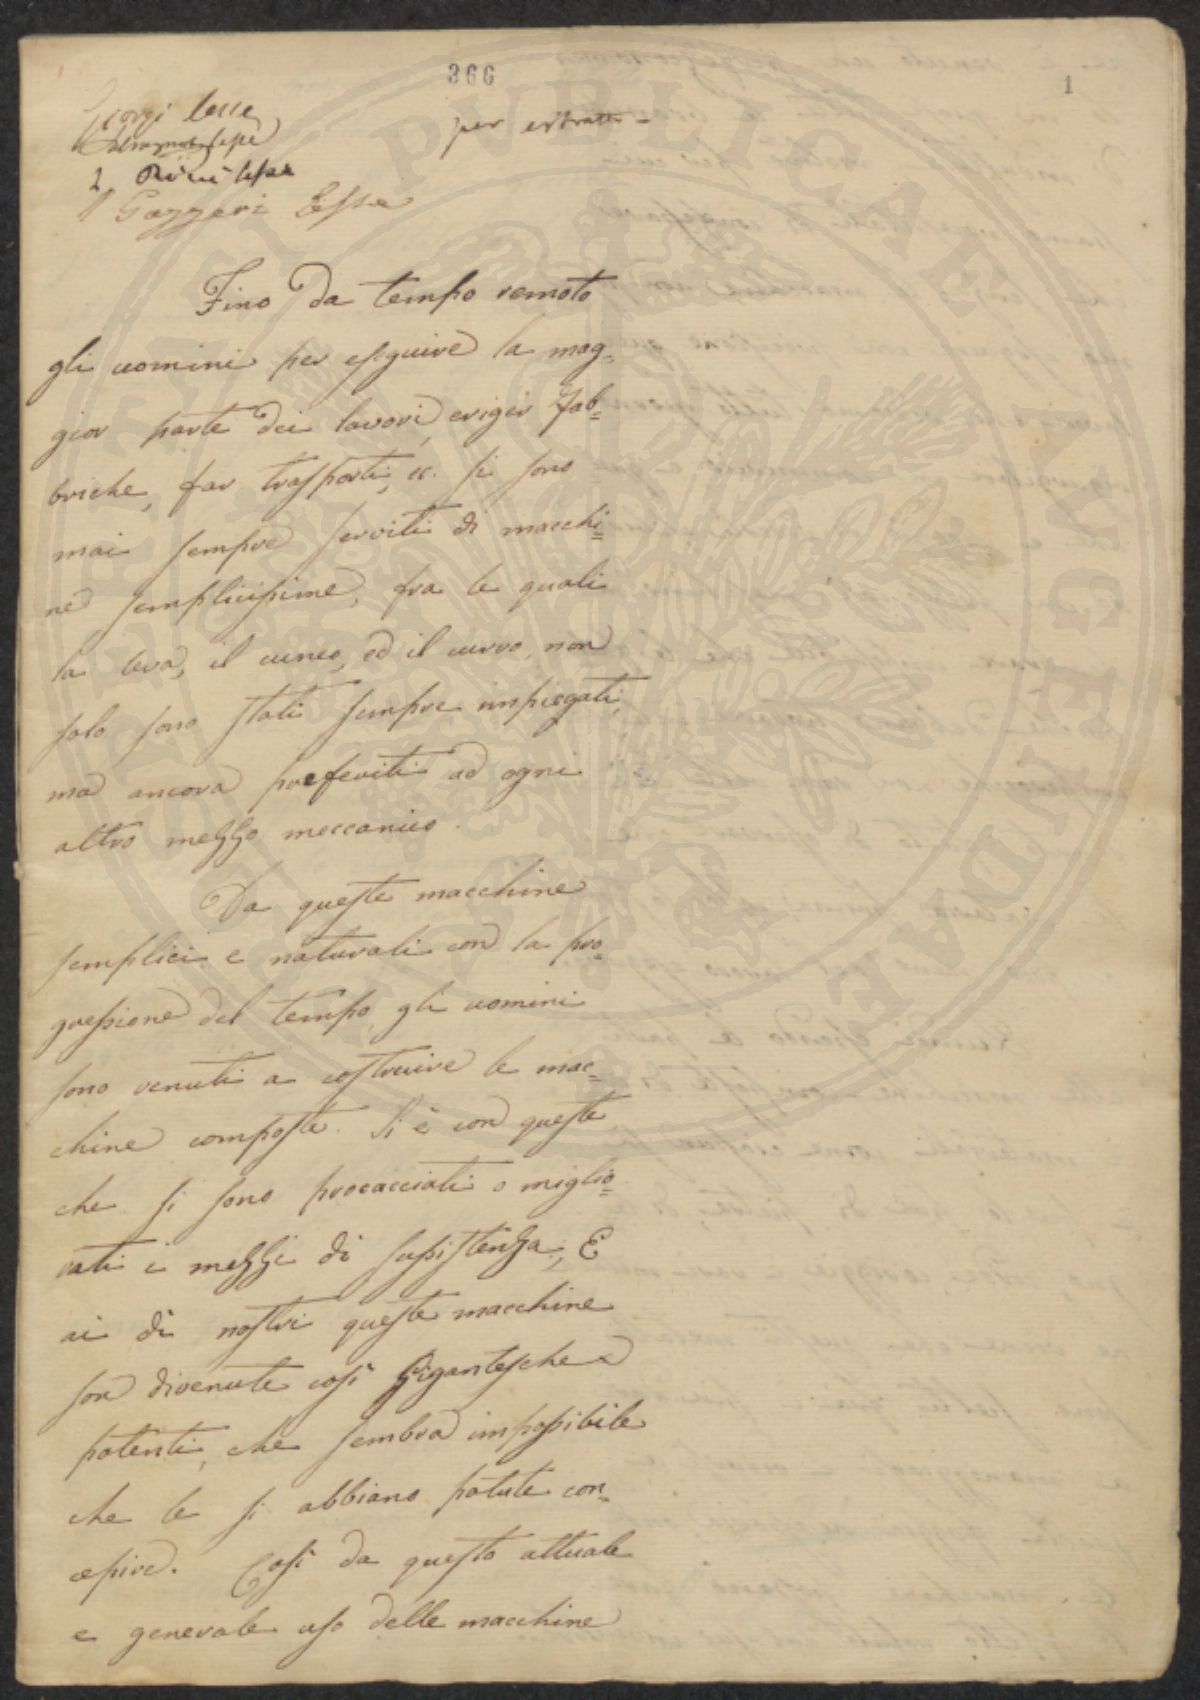 366
1
Giorgi lesse
per estratto
Ridolfi lesse
Gazzeri Lesse
Fino da tempo remoto
gli uomini per eseguire la mag=
gior parte dei lavori, eriger fab=
briche, far trasporti, ec. si sono
mai sempre serviti di macchi=
ne semplicissime, fra le quali
la leva, il cuneo, ed il curro, non
solo sono stati sempre impiegati,
ma ancora preferiti ad ogni
altro mezzo meccanico.
Da queste macchine
semplici e naturali con la pro=
gressione del tempo, gli uomini
sono venuti a costruire le mac=
chine composte. Si è con queste
che si sono procacciati o miglio=
rati i mezzi di sussistenza; E
ai dì nostri queste macchine
son divenute così Gigantesche e
potenti, che sembra impossibile
che le si abbiano potute con=
cepire. Così da questo attuale
e generale uso delle macchine